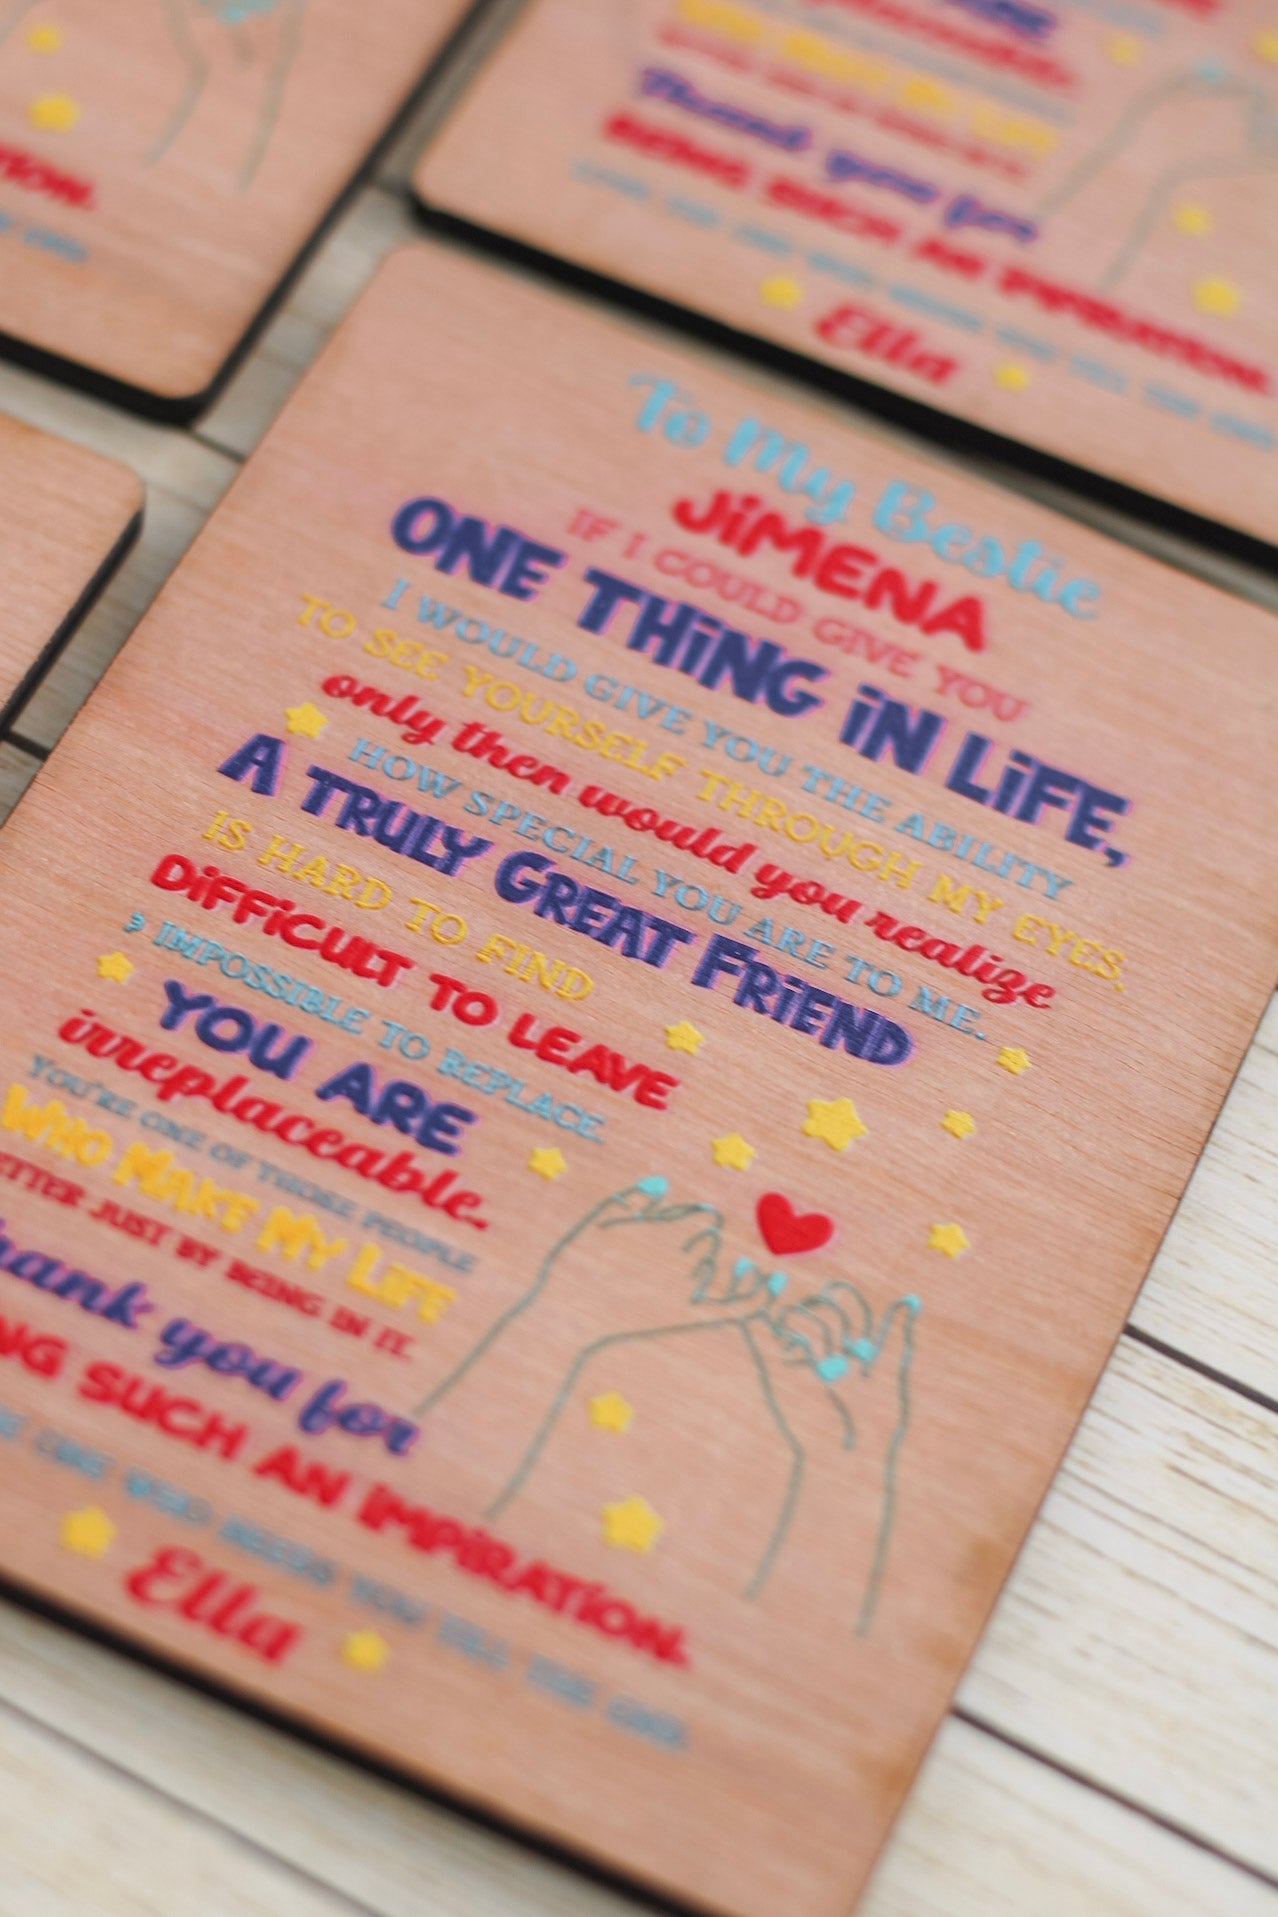 TION.
Thank you for
BEING SUCH AN IMPIRATION.
Ella
To My Bestie
JiMENA
IF I COULD GIVE YOU
ONE THiNG iN LiFE,
I WOULD GIVE YOU THE ABILITY
TO SEE YOURSELF THROUGH MY EYES,
only then would you realize
HOW SPECIAL YOU ARE TO ME.
A TRULY GREAT FRiEND
IS HARD TO FIND
DiFFiCULT TO LEAVE
, IMPOSSIBLE TO REPLACE.
YOU ARE
irreplaceable.
YOU'RE ONE OF THOSE PEOPLE
WHO MAKE MY LiFE
ETTER JUST BY BEING IN IT.
hank you for
NG SUCH AN iMPiRATiON.
ONE WHO NEEDS YOU TILL THE END.
Ella